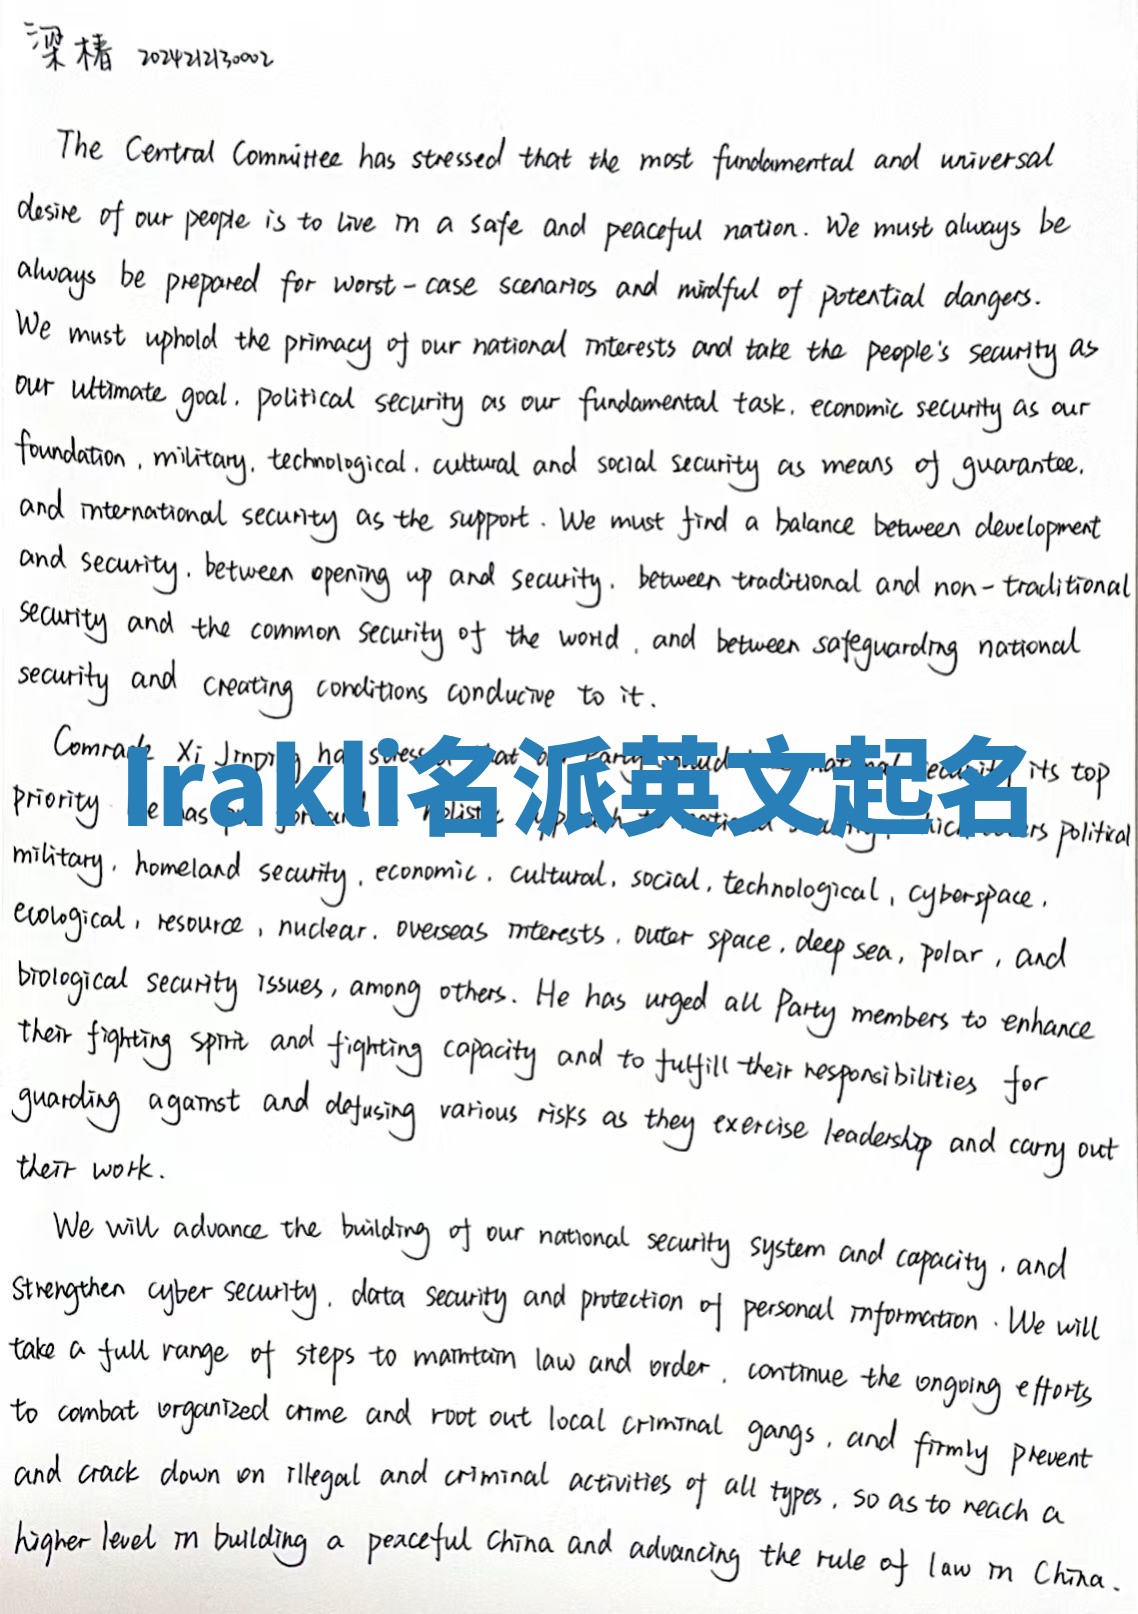 梁椿 2024212130002
The Central Committee has stressed that the most fundamental and universal
desire of our people is to live in a safe and peaceful nation. We must always be
always be prepared for worst-case scenarios and mindful of potential dangers.
We must uphold the primacy of our national interests and take the people's security as
our ultimate goal, political security as our fundamental task, economic security as our
foundation, military, technological, cultural and social security as means of guarantee,
and international security as the support. We must find a balance between development
and security, between opening up and security, between traditional and non-traditional
security and the common security of the world, and between safeguarding national
security and creating conditions conducive to it.
Comrade Xi Jinping has stressed that our Party should national security its top
Irakli名派英文起名
priority He has holistic approach to national security, which covers political
military, homeland security, economic, cultural, social, technological, cyberspace,
ecological, resource, nuclear, overseas interests, outer space, deep sea, polar, and
biological security issues, among others. He has urged all Party members to enhance
their fighting spirit and fighting capacity and to fulfill their responsibilities for
guarding against and defusing various risks as they exercise leadership and carry out
their work.
We will advance the building of our national security system and capacity, and
strengthen cyber security, data security and protection of personal information. We will
take a full range of steps to maintain law and order, continue the ongoing efforts
to combat organized crime and root out local criminal gangs, and firmly prevent
and crack down on illegal and criminal activities of all types, so as to reach a
higher level in building a peaceful China and advancing the rule of law in China.